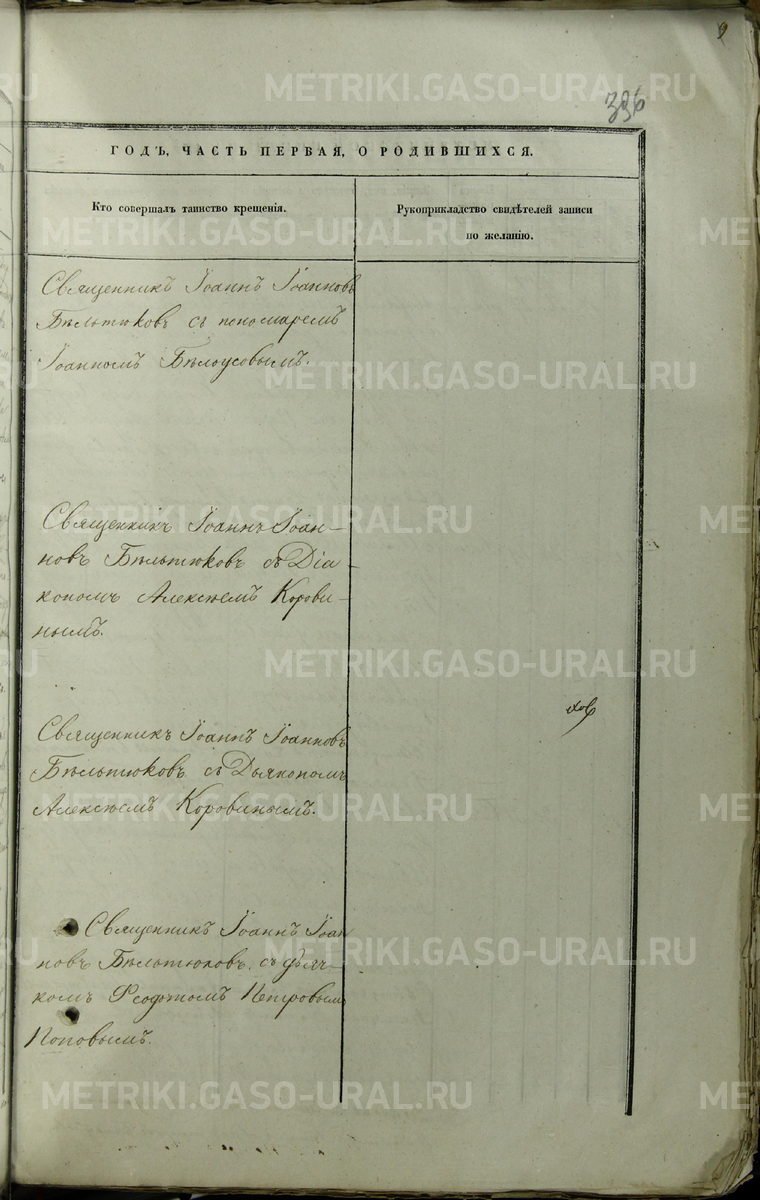 336
ГОДЪ, ЧАСТЬ ПЕРВАЯ, О РОДИВШИХСЯ.
Кто совершалъ таинство крещенія.
Рукоприкладство свидѣтелей записи
по желанію.
Священникъ Іоаннъ Іоанновъ
Бѣльтюковъ съ пономаремъ
Іоанномъ Бѣлоусовымъ.
Священникъ Іоаннъ Іоан-
новъ Бѣльтюковъ съ Діа-
кономъ Алексѣемъ Корови-
нымъ.
Священникъ Іоаннъ Іоанновъ
Бѣльтюковъ съ Дьякономъ
Алексѣемъ Коровинымъ.
Священникъ Іоаннъ Іоан
новъ Бѣльтюковъ съ дьяч-
комъ Феофтомъ Петровымъ
Поповымъ.
METRIKI.GASO-URAL.RU